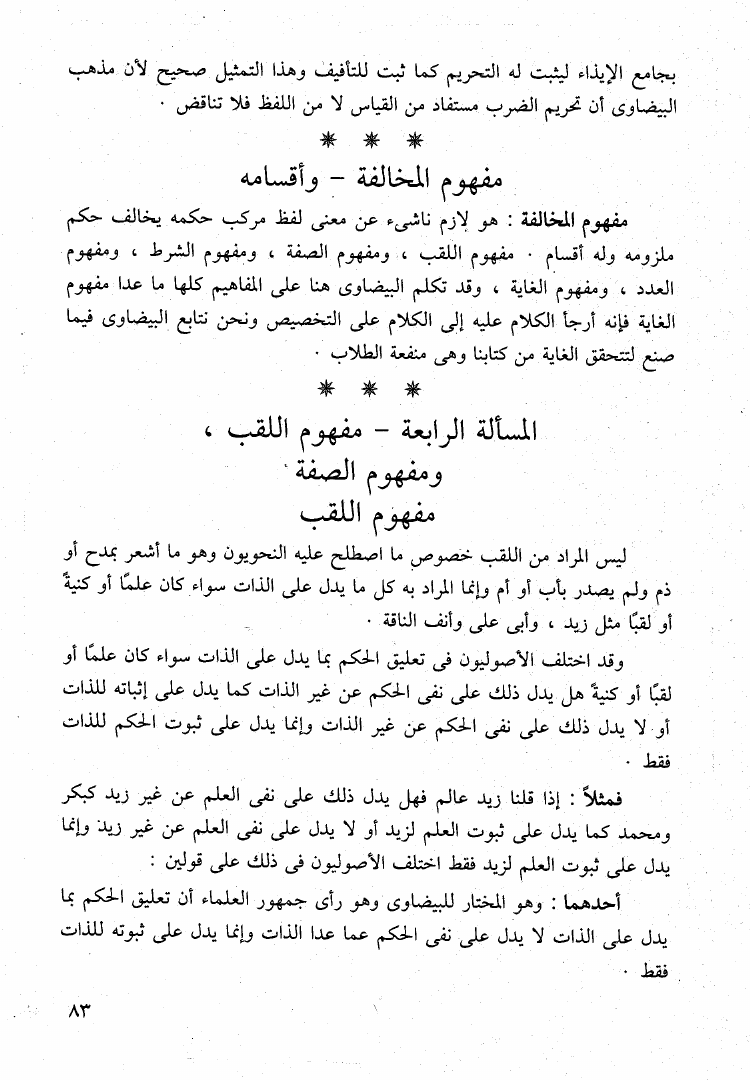 بجامع الإيذاء ليثبت له التحريم كما ثبت للتأفيف وهذا التمثيل صحيح لأن مذهب
البيضاوى أن تحريم الضرب مستفاد من القياس لا من اللفظ فلا تناقض .
* * *
مفهوم المخالفة – وأقسامه
مفهوم المخالفة : هو لازم ناشىء عن معنى لفظ مركب حكمه يخالف حكم
ملزومه وله أقسام . مفهوم اللقب ، ومفهوم الصفة ، ومفهوم الشرط ، ومفهوم
العدد ، ومفهوم الغاية ، وقد تكلم البيضاوى هنا على المفاهيم كلها ما عدا مفهوم
الغاية فإنه أرجأ الكلام عليه إلى الكلام على التخصيص ونحن نتابع البيضاوى فيما
صنع لتتحقق الغاية من كتابنا وهى منفعة الطلاب .
* * *
المسألة الرابعة – مفهوم اللقب ،
ومفهوم الصفة
مفهوم اللقب
ليس المراد من اللقب خصوص ما اصطلح عليه النحويون وهو ما أشعر بمدح أو
ذم ولم يصدر بأب أو أم وإنما المراد به كل ما يدل على الذات سواء كان علمًا أو كنيةً
أو لقبًا مثل زيد ، وأبى على وأنف الناقة .
وقد اختلف الأصوليون فى تعليق الحكم بما يدل على الذات سواء كان علمًا أو
لقبًا أو كنيةً هل يدل ذلك على نفى الحكم عن غير الذات كما يدل على إثباته للذات
أو لا يدل ذلك على نفى الحكم عن غير الذات وإنما يدل على ثبوت الحكم للذات
فقط .
فمثلاً : إذا قلنا زيد عالم فهل يدل ذلك على نفى العلم عن غير زيد كبكر
ومحمد كما يدل على ثبوت العلم لزيد أو لا يدل على نفى العلم عن غير زيد وإنما
يدل على ثبوت العلم لزيد فقط اختلف الأصوليون فى ذلك على قولين :
أحدهما : وهو المختار للبيضاوى وهو رأى جمهور العلماء أن تعليق الحكم بما
يدل على الذات لا يدل على نفى الحكم عما عدا الذات وإنما يدل على ثبوته للذات
فقط .
٨٣